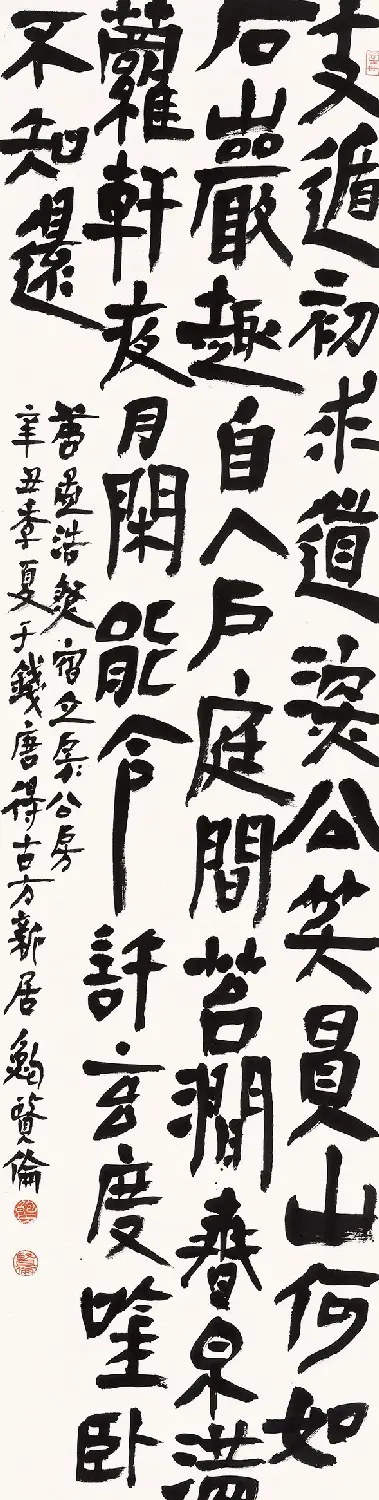 支遁初求道深公笑買山何如
石巖趣自入戶庭間苔澗春泉滿
蘿軒夜月閑能令許玄度吟臥
不知還
書孟浩然宿立公房
辛丑季夏于錢唐得古方新居鮑賢倫